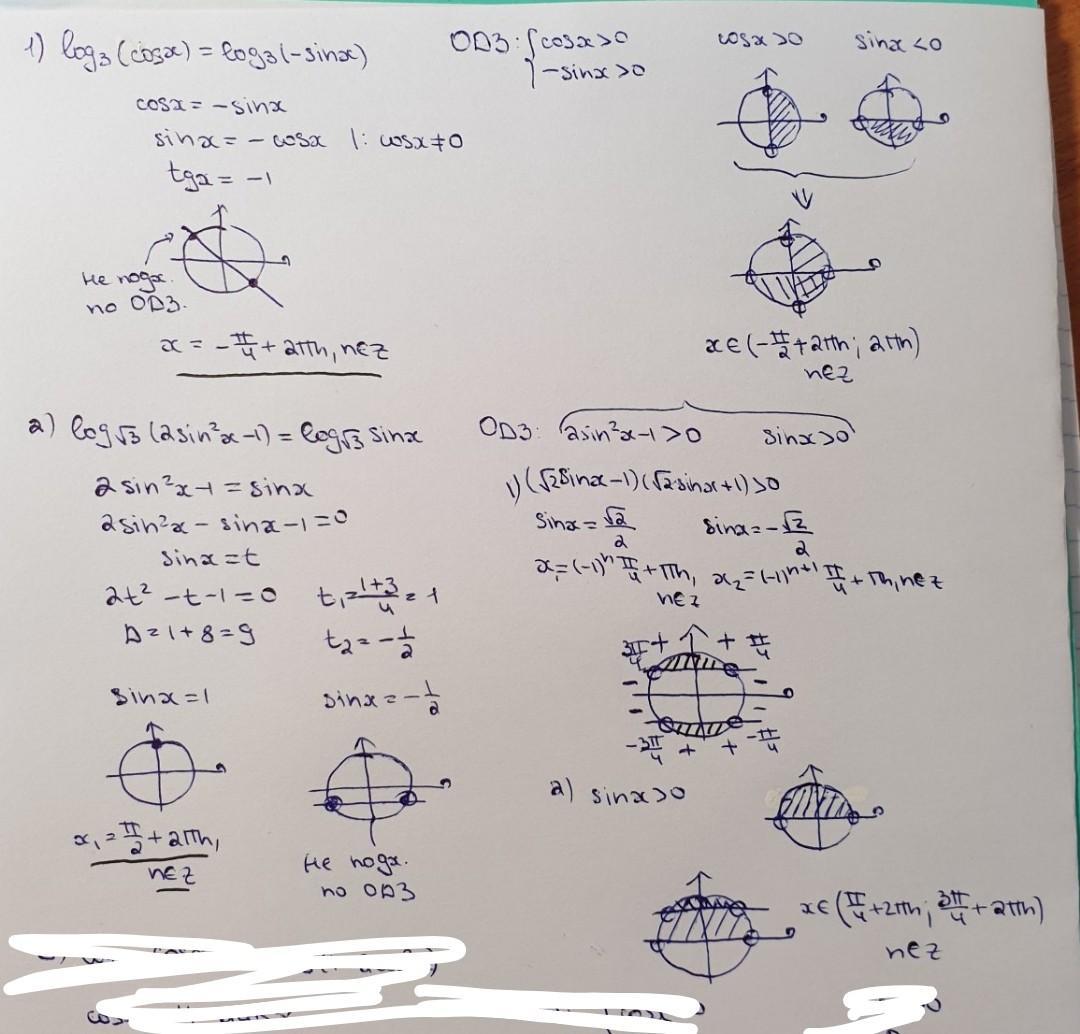 1) log₃(cosx) = log₃(-sinx)
ОДЗ: { cosx>0
-sinx>0
cosx>0 sinx<0
cosx = -sinx
sinx = -cosx |: cosx≠0
tgx = -1
не подх.
по ОДЗ.
x = -π/4 + 2πn, n∈Z
x∈(-π/2+2πn; 2πn)
n∈Z
2) log√3 (2sin²x-1) = log√3 sinx
2sin²x-1 = sinx
2sin²x - sinx-1=0
sinx=t
2t² -t-1=0 t₁=(1+3)/4=1
D=1+8=9 t₂=-1/2
sinx=1 sinx=-1/2
x₁=π/2+2πn,
n∈Z
не подх.
по ОДЗ
ОДЗ: 2sin²x-1>0 sinx>0
1) (√2sinx-1)(√2sinx+1)>0
sinx=√2/2 sinx=-√2/2
x₁=(-1)ⁿ π/4+πn, x₂=(-1)ⁿ⁺¹ π/4+πn, n∈Z
n∈Z
3π/4 + + π/4
- -
- -
-3π/4 + + -π/4
2) sinx>0
x∈(π/4+2πn; 3π/4+2πn)
n∈Z